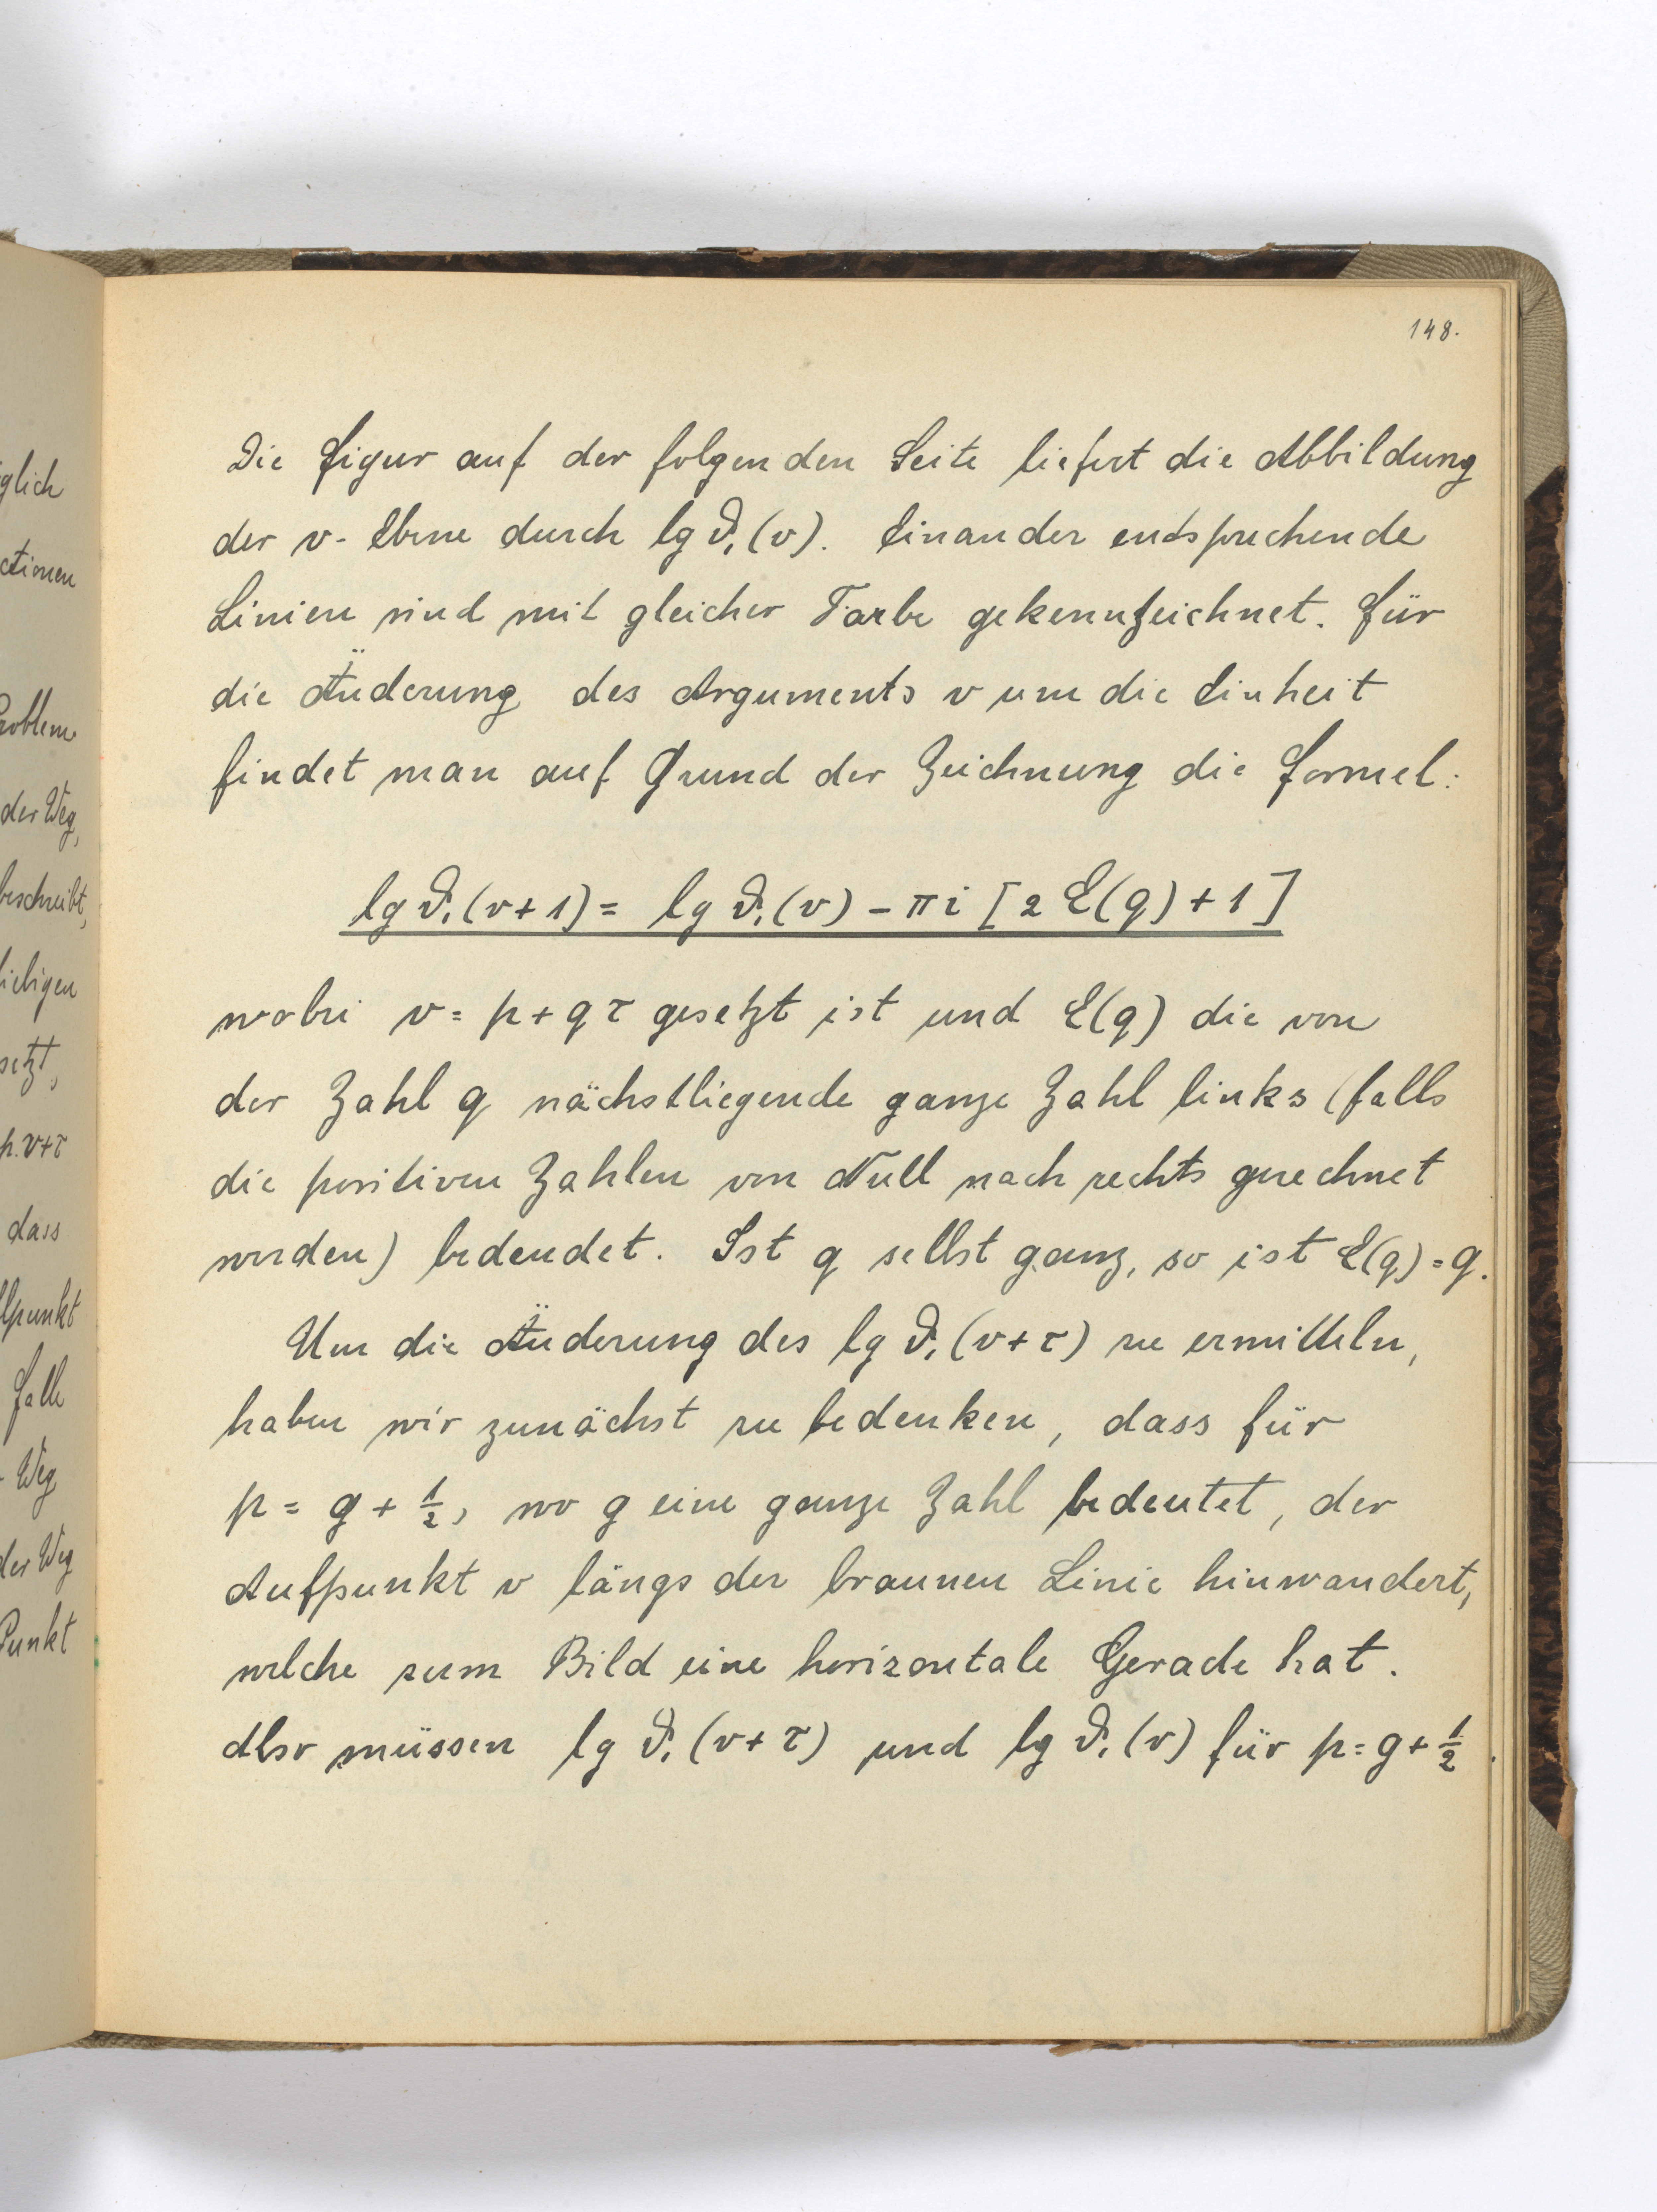 148.
Die Figur auf der folgenden Seite liefert die Abbildung
der v-Ebene durch lg ϑ₁(v). Einander entsprechende
Linien sind mit gleicher Farbe gekennzeichnet. Für
die Änderung des Arguments v um die Einheit
findet man auf Grund der Zeichnung die Formel:
lg ϑ₁(v+1) = lg ϑ₁(v) – πi [2 E(q) + 1]
wobei v = p + qτ gesetzt ist und E(q) die von
der Zahl q nächstliegende ganze Zahl links (falls
die positiven Zahlen von Null nach rechts gerechnet
werden) bedeudet. Ist q selbst ganz, so ist E(q) = q.
Um die Änderung des lg ϑ₁(v+τ) zu ermitteln,
haben wir zunächst zu bedenken, dass für
p = g + 1/2, wo g eine ganze Zahl bedeutet, der
Aufpunkt v längs der braunen Linie hinwandert,
welche zum Bild eine horizontale Gerade hat.
Also müssen lg ϑ₁(v+τ) und lg ϑ₁(v) für p = g + 1/2
glich
ctionen
Problem
der Weg,
beschreibt,
liebigen
setzt,
p. v+τ
dass
lpunkt
Falle
Weg
der Weg
Punkt